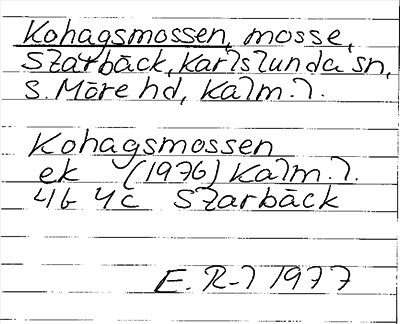 Kohagsmossen, mosse,
Skarbäck, Karlslunda sn,
S. Möre hd, Kalm. l.
Kohagsmossen
ek (1976) Kalm. l.
4G 4c Skarbäck
E. R-l 1977